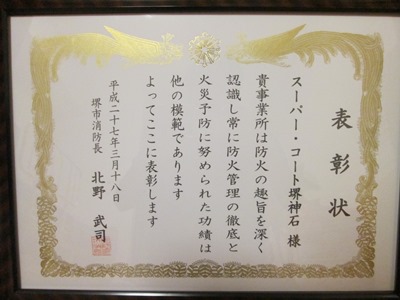 表彰状
スーパー・コート堺神石 様
貴事業所は防火の趣旨を深く
認識し常に防火管理の徹底と
火災予防に努められた功績は
他の模範であります
よってここに表彰します
平成二十七年三月十八日
堺市消防長 北野 武司